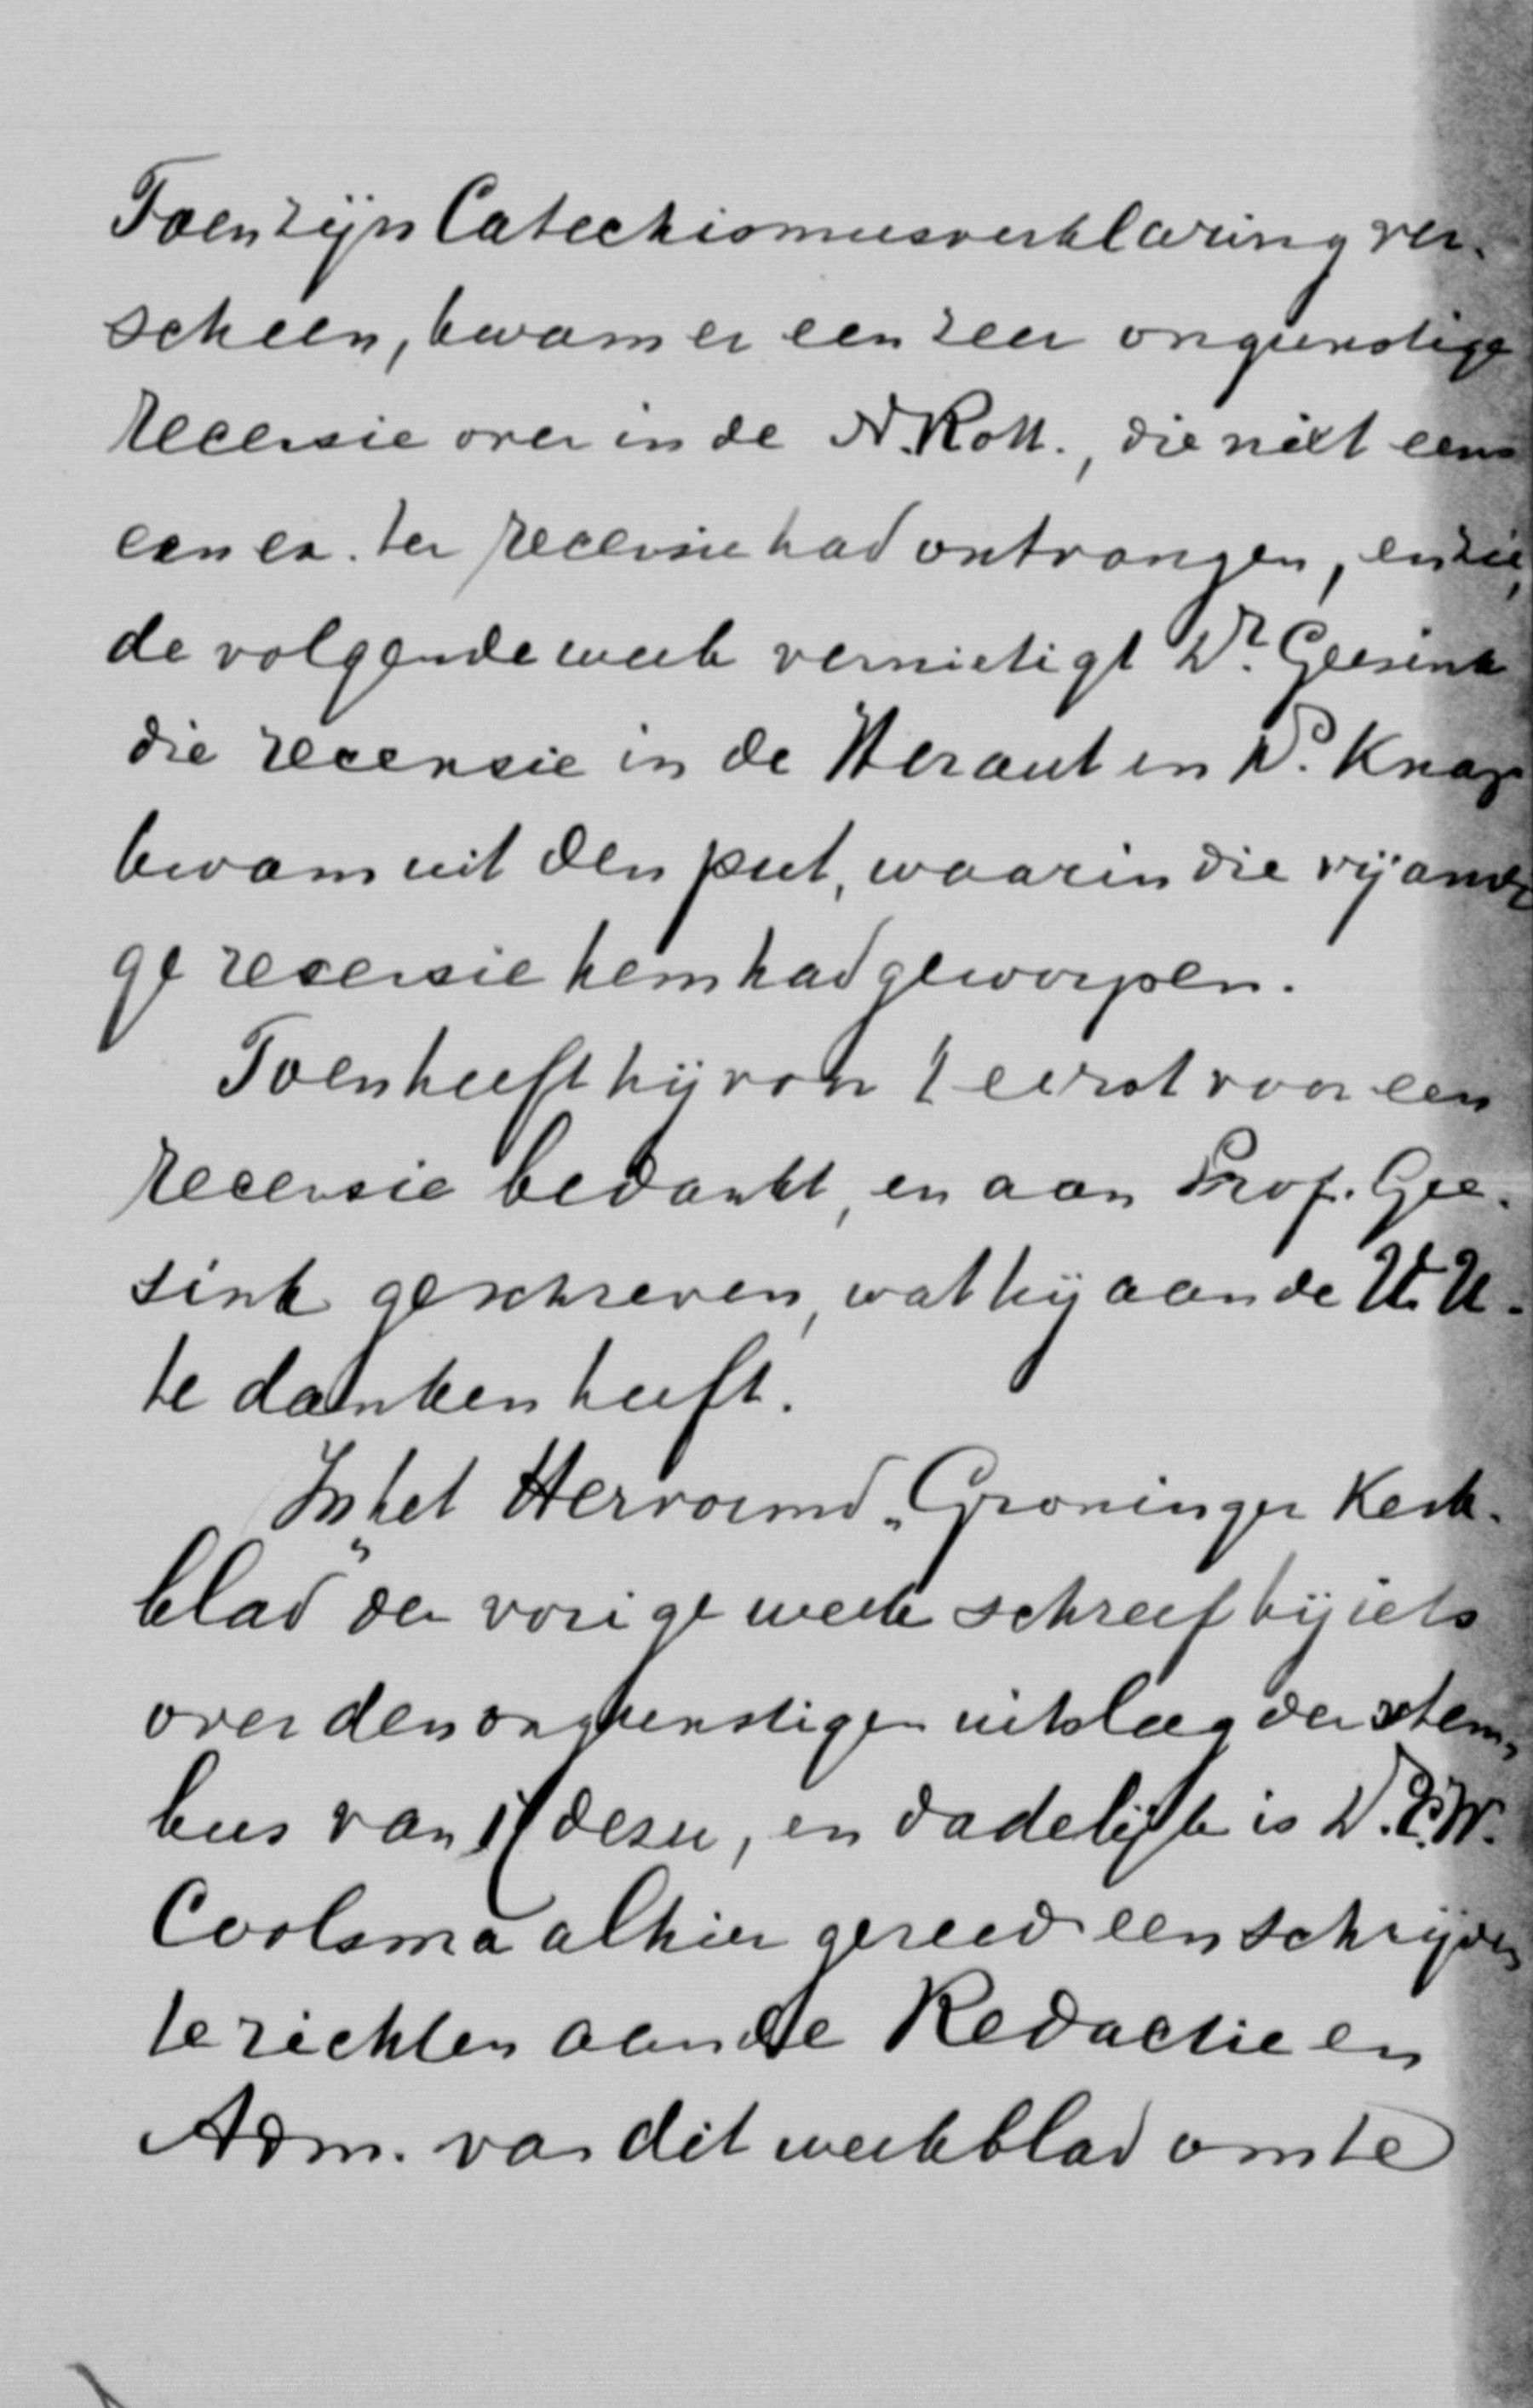 Toen zijn Catechismusverklaring ver-
scheen, kwam er een zeer ongunstige
recensie over in de N. Rott., die niet eens
een ex. ter recensie had ontvangen, en zie,
de volgende week vernietigt Dr. Geesink
die recensie in de Heraut en D. Knap
kwam uit den put, waarin die vijandi
ge recensie hem had geworpen.
Toen heeft hij voor 't eerst voor een
recensie bedankt, en aan Prof. Gee-
sink geschreven, wat hij aan de V.U.
te danken heeft.
In het Hervormd „Groninger Kerk-
blad" der vorige week schreef hij iets
over den ongunstigen uitslag der stem-
bus van deser, en dadelijk is D.
Coolsma alhier gereed een schrijven
te richten aan de Redactie en
Adm. van dit weekblad om te